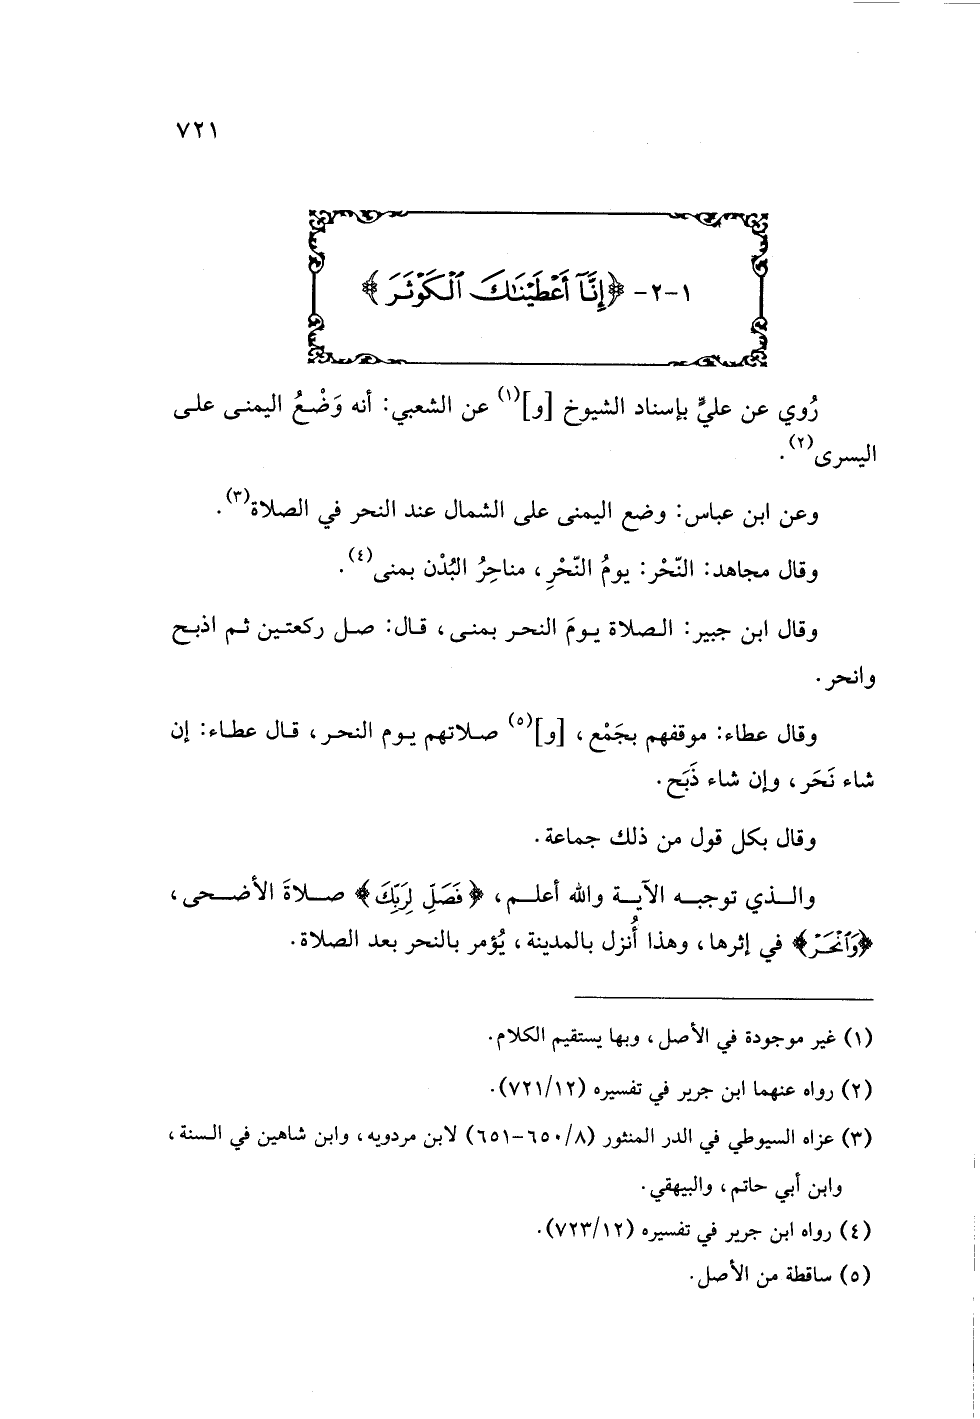 ٧٢١
١-٢- ﴿إِنَّآ أَعْطَيْنَٰكَ ٱلْكَوْثَرَ﴾
رُوي عن عليٍّ بإسناد الشيوخ [و](١) عن الشعبي: أنه وَضْعُ اليمنى على
اليسرى(٢).
وعن ابن عباس: وضع اليمنى على الشمال عند النحر في الصلاة(٣).
وقال مجاهد: النّحْر: يومُ النّحْرِ، مناحِرُ البُدْن بمنى(٤).
وقال ابن جبير: الصلاة يومَ النحر بمنى، قال: صل ركعتين ثم اذبح
وانحر.
وقال عطاء: موقفهم بجَمْع، [و](٥) صلاتهم يوم النحر، قال عطاء: إن
شاء نَحَر، وإن شاء ذَبَح.
وقال بكل قول من ذلك جماعة.
والذي توجبه الآية والله أعلم، ﴿فَصَلِّ لِرَبِّكَ﴾ صلاةَ الأضحى،
﴿وَٱنْحَرْ﴾ في إثرها، وهذا أُنزل بالمدينة، يُؤمر بالنحر بعد الصلاة.
(١) غير موجودة في الأصل، وبها يستقيم الكلام.
(٢) رواه عنهما ابن جرير في تفسيره (٧٢١/١٢).
(٣) عزاه السيوطي في الدر المنثور (٦٥٠/٨-٦٥١) لابن مردويه، وابن شاهين في السنة،
وابن أبي حاتم، والبيهقي.
(٤) رواه ابن جرير في تفسيره (٧٢٣/١٢).
(٥) ساقطة من الأصل.